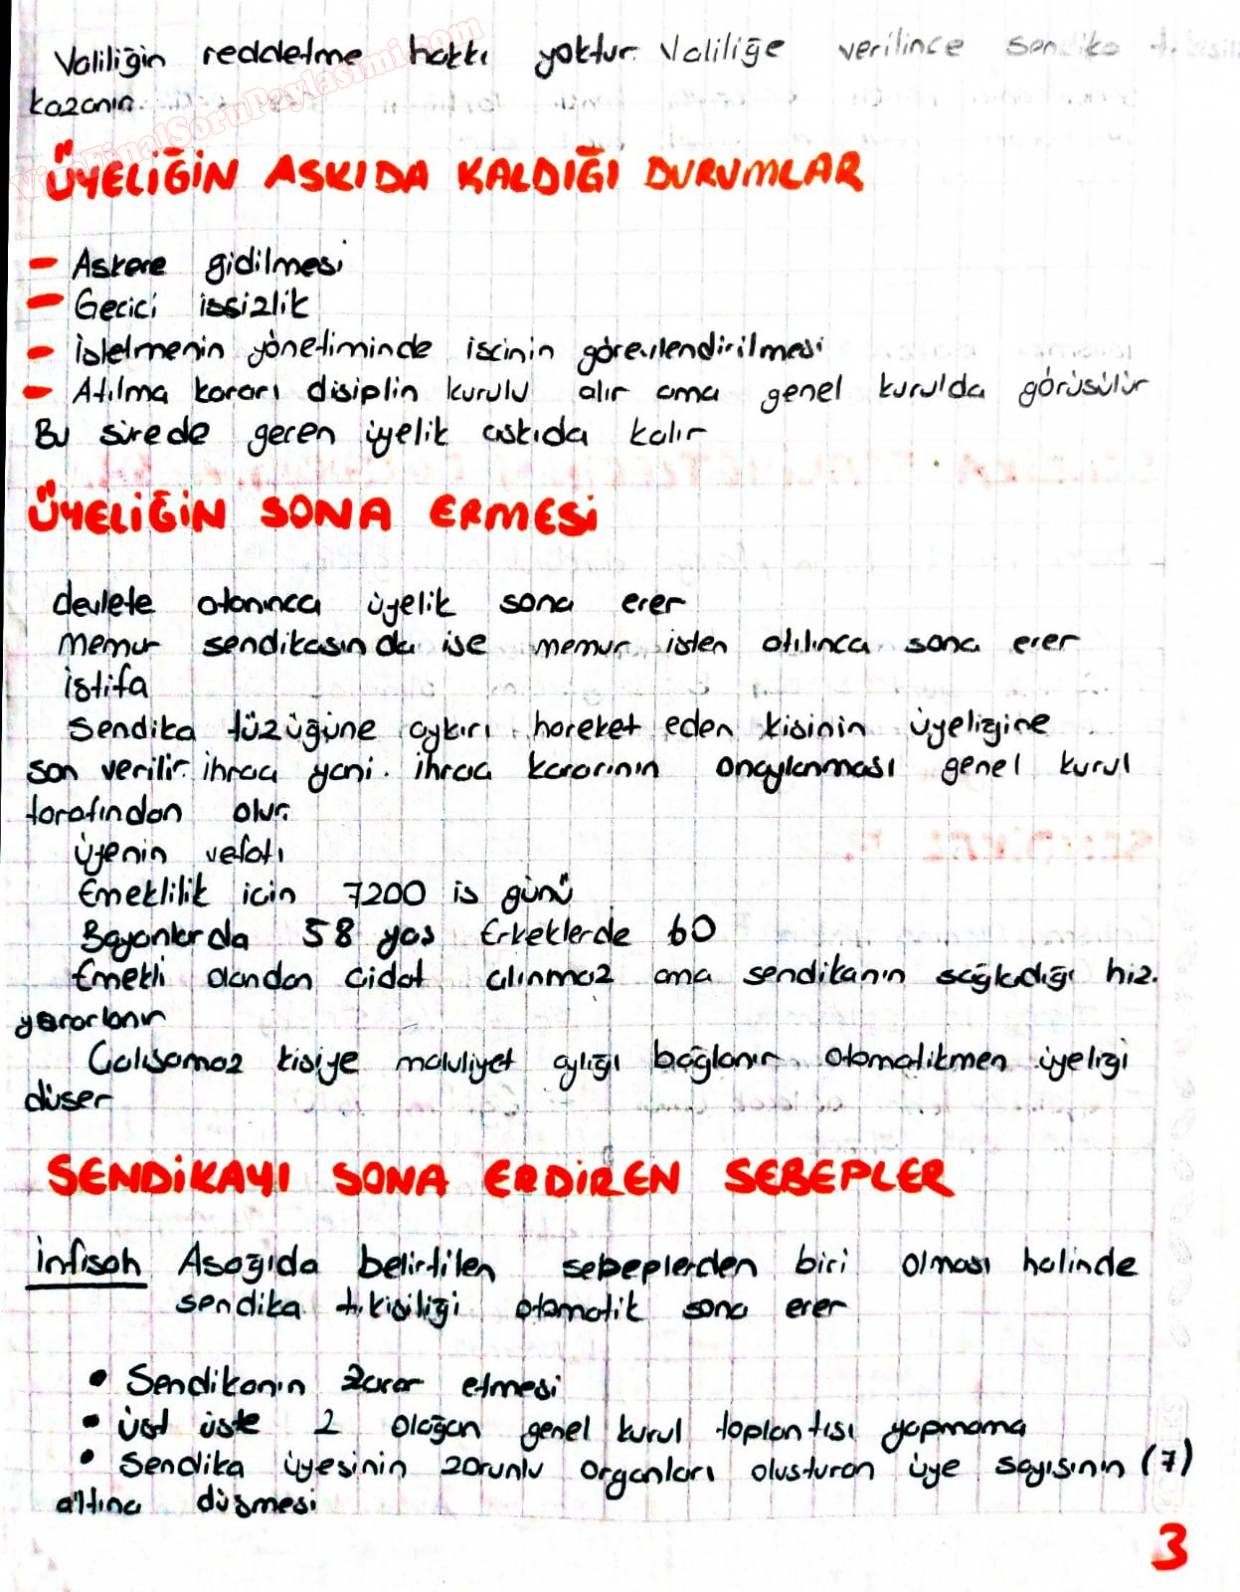 Valiliğin reddetme hakkı yoktur. Valiliğe verilince sendika t.kişil
kazanır.
VizeFinalSoruPaylasimi.com
ÜYELİĞİN ASKIDA KALDIĞI DURUMLAR
- Askere gidilmesi
- Gecici issizlik
- İsletmenin yönetiminde iscinin görevlendirilmesi
- Atılma kararı disiplin kurulu alır ama genel kurulda görüsülür
Bu sürede gecen üyelik askıda kalır
ÜYELİĞİN SONA ERMESİ
devlete atanınca üyelik sona erer
Memur sendikasında ise memur isten atılınca sona erer
istifa
Sendika tüzüğüne aykırı hareket eden kisinin üyeliğine
son verilir. ihraç yani. ihraç kararının onaylanması genel kurul
tarafından olur.
üyenin vefatı
Emeklilik icin 7200 is günü
Bayanlarda 58 yas Erkeklerde 60
Emekli olandan aidat alınmaz ama sendikanın sağladığı hiz.
yararlanır
Calısamaz kisiye maluliyet aylığı bağlanır. otomatikmen üyeliği
düser
SENDİKAYI SONA ERDİREN SEBEPLER
İnfisah Asağıda belirtilen sebeplerden biri olması halinde
sendika t.kisiliği otomatik sona erer
• Sendikanın zarar etmesi
• Üst üste 2 olağan genel kurul toplantısı yapmama
• Sendika üyesinin zorunlu organları olusturan üye sayısının (7)
altına düsmesi
3